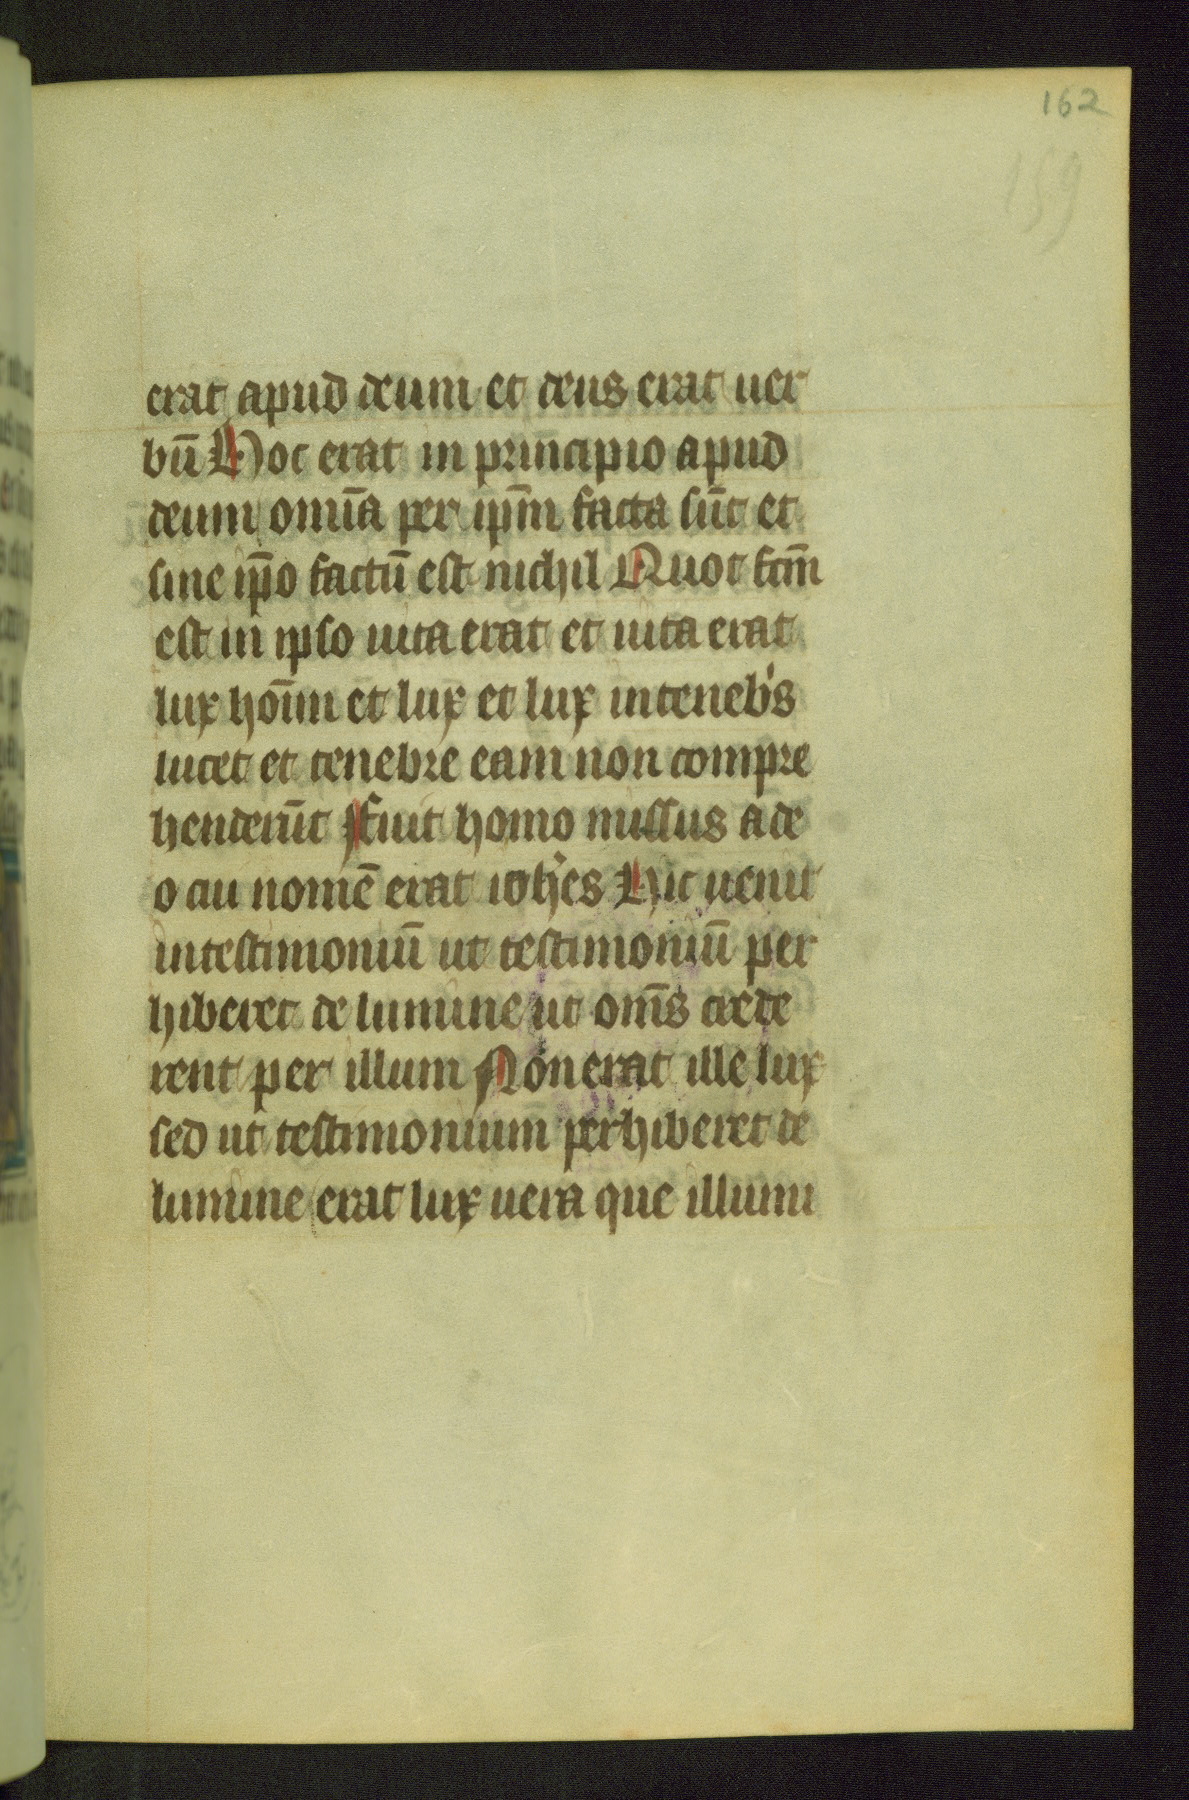 162
159
erat apud deum et deus erat uer
bū Hoc erat in principio apud
deum omīa per ip̄m facta sūt et
sine ip̄o factū est nichil Quot fcm̄
est in ipso uita erat et uita erat
lux hoīm et lux et lux in teneb's
lucet et tenebre eam non compre
henderūt Fuit homo missus a de
o cui nomē erat ioh'es Hic uenit
in testimoniū ut testimoniū per
hiberet de lumine ut om̄s crede
rent per illum Non erat ille lux
sed ut testimonium perhiberet de
lumine erat lux uera que illumi